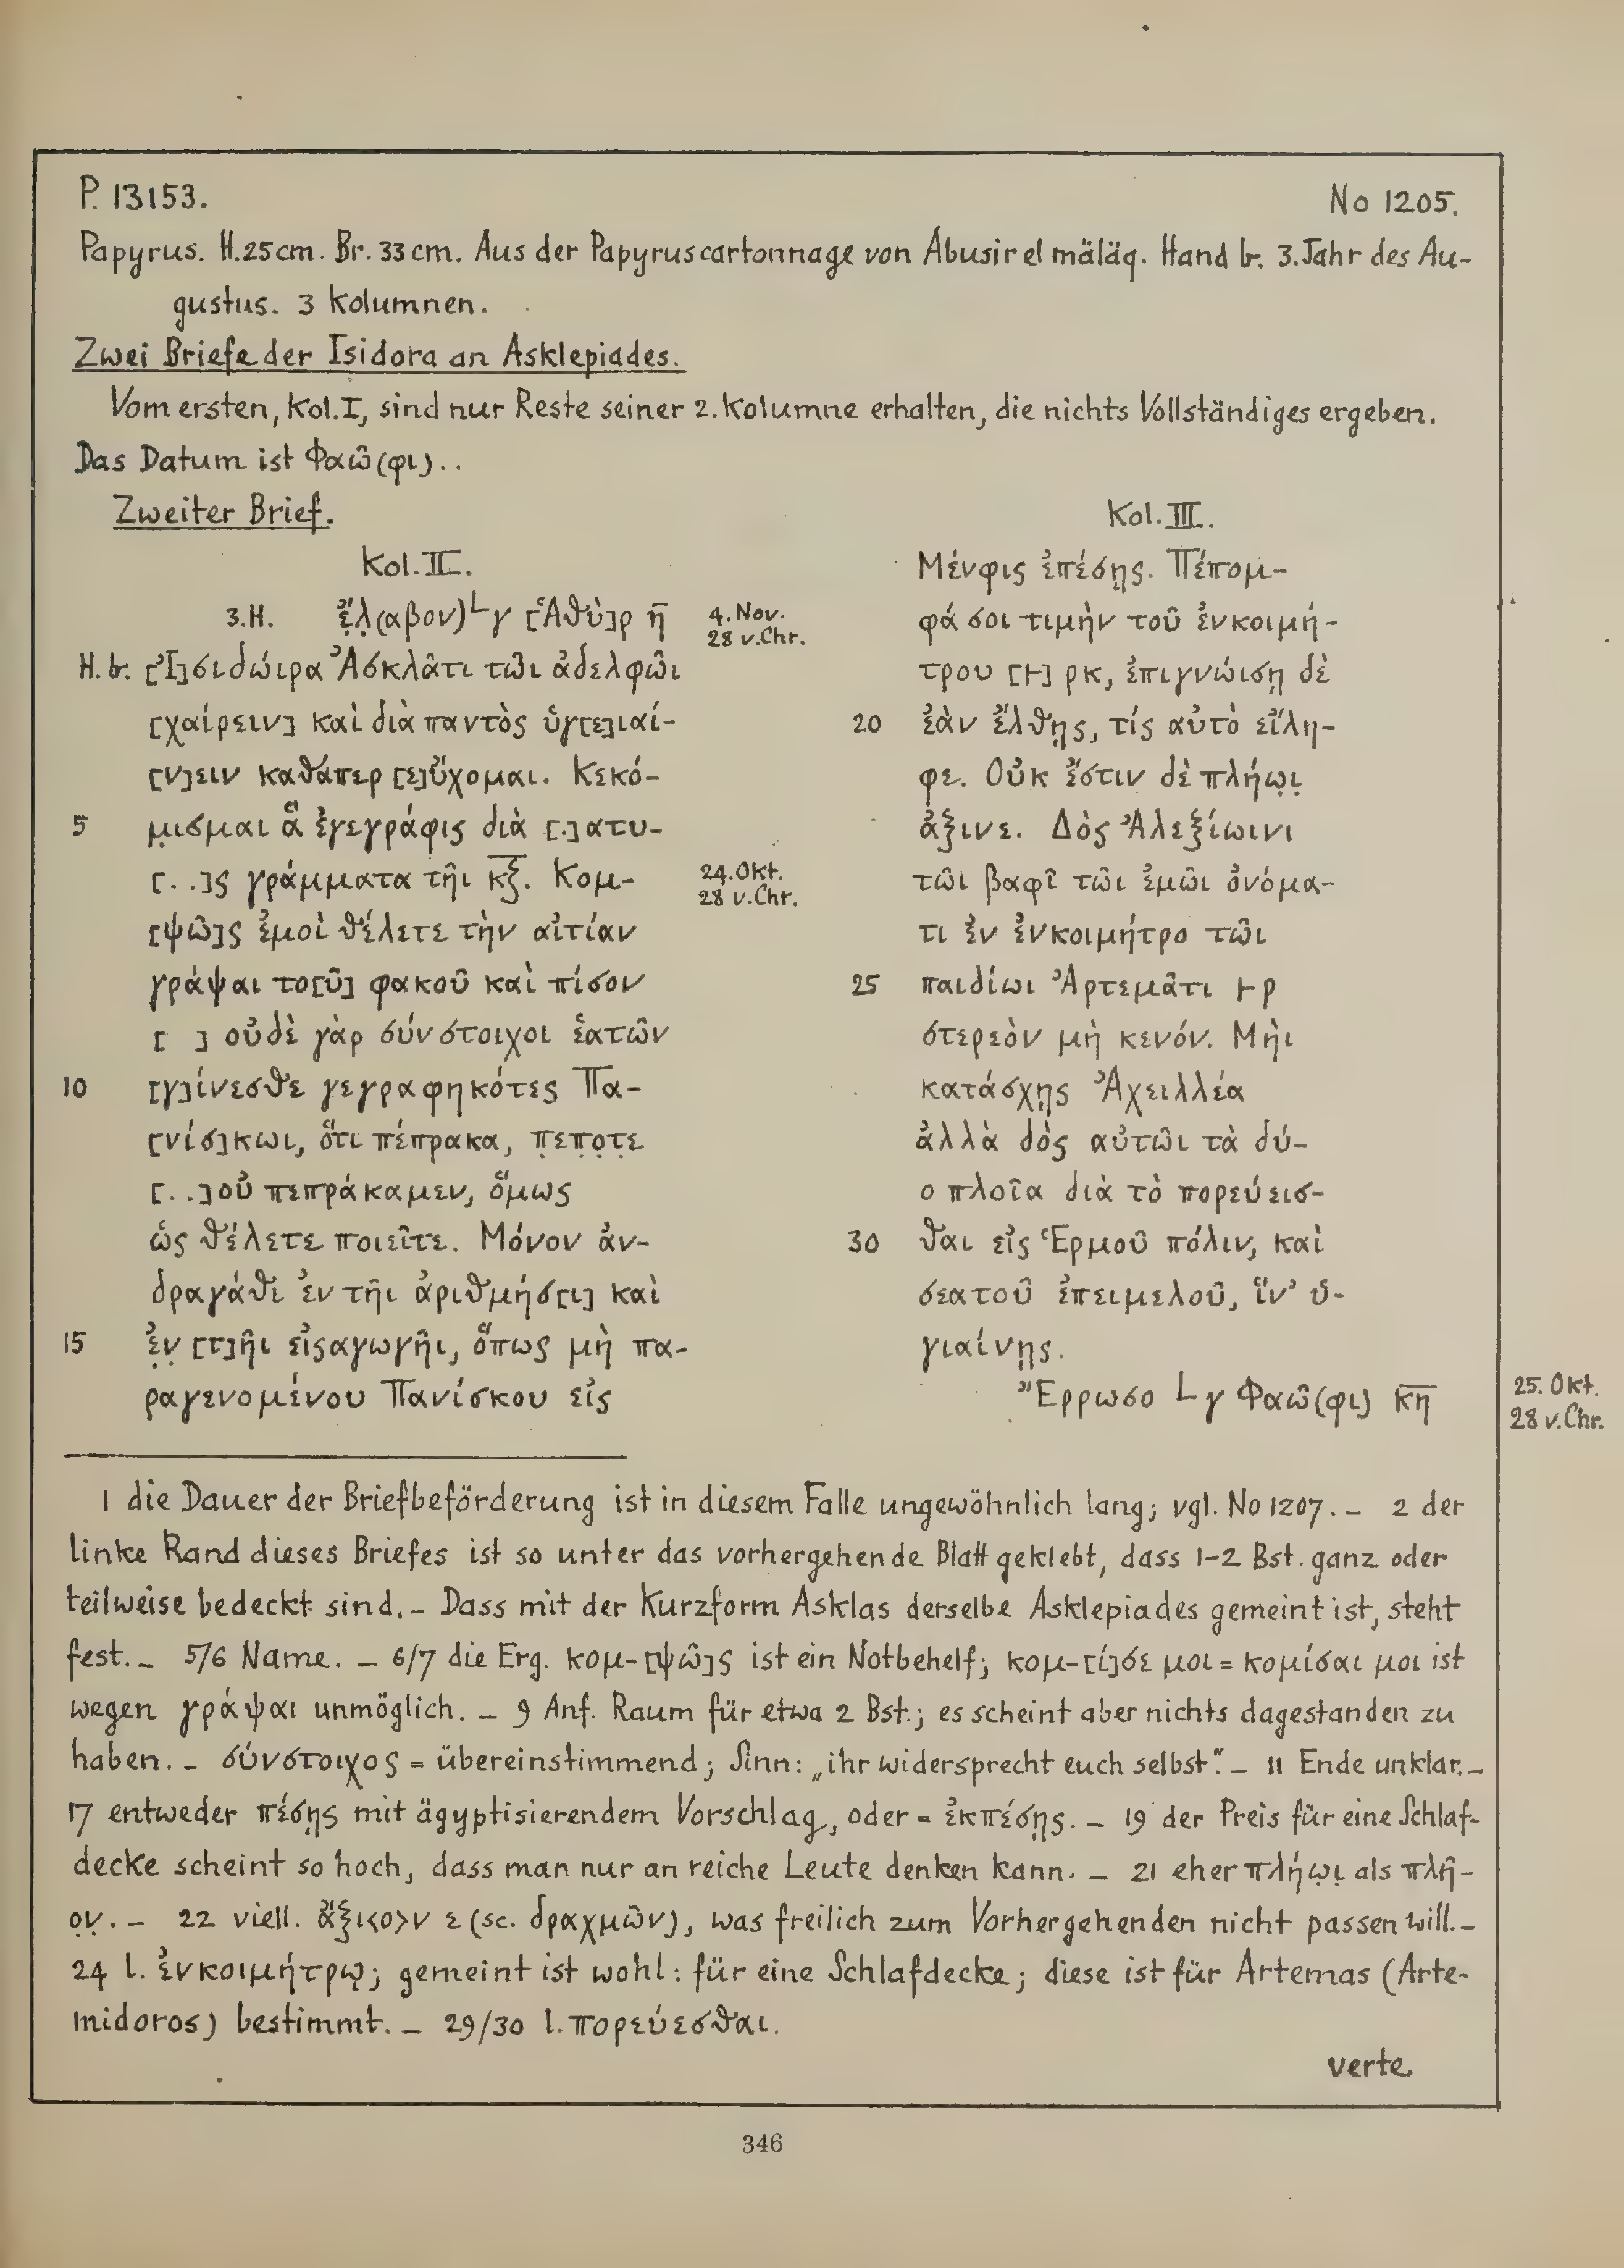 P. 13153.
No 1205.
Papyrus. H.25cm. Br. 33cm. Aus der Papyruscartonnage von Abusir el mäläq. Hand b. 3. Jahr des Au-
gustus. 3 Kolumnen.
Zwei Briefe der Isidora an Asklepiades.
Vom ersten, Kol. I, sind nur Reste seiner 2. Kolumne erhalten, die nichts Vollständiges ergeben.
Das Datum ist Φαῶ(φι)..
Zweiter Brief.
Kol. II.
3.H. ἔ̣λ̣(αβον) L γ [Ἁθὺ]ρ η̅ 4. Nov.
28 v. Chr.
H. b. [Ἰ]σιδώιρα Ἀσκλᾶτι τῶι ἀδελφῶι
[χαίρειν] καὶ διὰ παντὸς ὑγ[ε]ιαί-
[ν]ειν καθάπερ [ε]ὔχομαι. Κεκό-
5 μ̣ισμαι ἃ ἐγεγράφις διὰ [.]ατυ-
[. .]ς γράμματα τῆι κ̅ξ̅. Κομ- 24. Okt.
28 v. Chr.
[ψῶ]ς ἐμοὶ θέλετε τὴν αἰτίαν
γράψαι το[ῦ] φακοῦ καὶ πίσον
[ ] οὐδὲ γὰρ σύνστοιχοι ἑατῶν
10 [γ]ίνεσθε γεγραφηκότες Πα-
[νίσ]κωι, ὅτι πέπρακα, π̣επ̣ο̣τ̣ε
[. .]οὐ πεπράκαμεν, ὅμως
ὡς θέλετε ποιεῖτε. Μόνον ἀν-
δραγάθι ἐν τῆι ἀριθμήσ[ι] καὶ
15 ἐ̣ν̣ [τ]ῆι εἰςαγωγῆι, ὅπως μὴ πα-
ραγενομένου Πανίσκου εἰς
Kol. III.
Μένφις ἐπέσῃς. Πέπομ-
φά σοι τιμὴν τοῦ ἐνκοιμή-
τρου [𐅂] ρκ, ἐπιγνώισῃ δὲ
20 ἐὰν ἔλθῃς, τίς αὐτὸ εἴλη-
φε. Οὐκ ἔστιν δὲ πλήω̣ι̣
ἀξινε. Δὸς Ἀλεξίωινι
τῶι βαφῖ τῶι ἐμῶι ὀνόμα-
τι ἐν ἐνκοιμήτρο τῶι
25 παιδίωι Ἀρτεμᾶτι 𐅂 ρ
στερεὸν μὴ κενόν. Μὴι
κατάσχῃς Ἀχειλλέα
ἀλλὰ δὸς αὐτῶι τὰ δύ-
ο πλοῖα διὰ τὸ πορεύεισ-
30 θαι εἰς Ἑρμοῦ πόλιν, καὶ
σεατοῦ ἐπειμελοῦ, ἵν' ὑ-
γιαίνῃς.
Ἔρρωσο L γ Φαῶ(φι) κ̅η̅ 25. Okt.
28 v. Chr.
1 die Dauer der Briefbeförderung ist in diesem Falle ungewöhnlich lang; vgl. No 1207. – 2 der
linke Rand dieses Briefes ist so unter das vorhergehende Blatt geklebt, dass 1-2 Bst. ganz oder
teilweise bedeckt sind. – Dass mit der Kurzform Asklas derselbe Asklepiades gemeint ist, steht
fest. – 5/6 Name. – 6/7 die Erg. κομ-[ψῶ]ς ist ein Notbehelf; κομ-[ί]σε μοι = κομίσαι μοι ist
wegen γράψαι unmöglich. – 9 Anf. Raum für etwa 2 Bst.; es scheint aber nichts dagestanden zu
haben. – σύνστοιχος = übereinstimmend; Sinn: „ihr widersprecht euch selbst". – 11 Ende unklar. –
17 entweder πέσῃς mit ägyptisierendem Vorschlag, oder = ἐκπέσῃς. – 19 der Preis für eine Schlaf-
decke scheint so hoch, dass man nur an reiche Leute denken kann. – 21 eher πλήω̣ι̣ als πλῆ-
ο̣ν̣. – 22 viell. ἄξι<ο>ν ε (sc. δραχμῶν), was freilich zum Vorhergehenden nicht passen will. –
24 l. ἐνκοιμήτρῳ; gemeint ist wohl: für eine Schlafdecke; diese ist für Artemas (Arte-
midoros) bestimmt. – 29/30 l. πορεύεσθαι.
verte
346